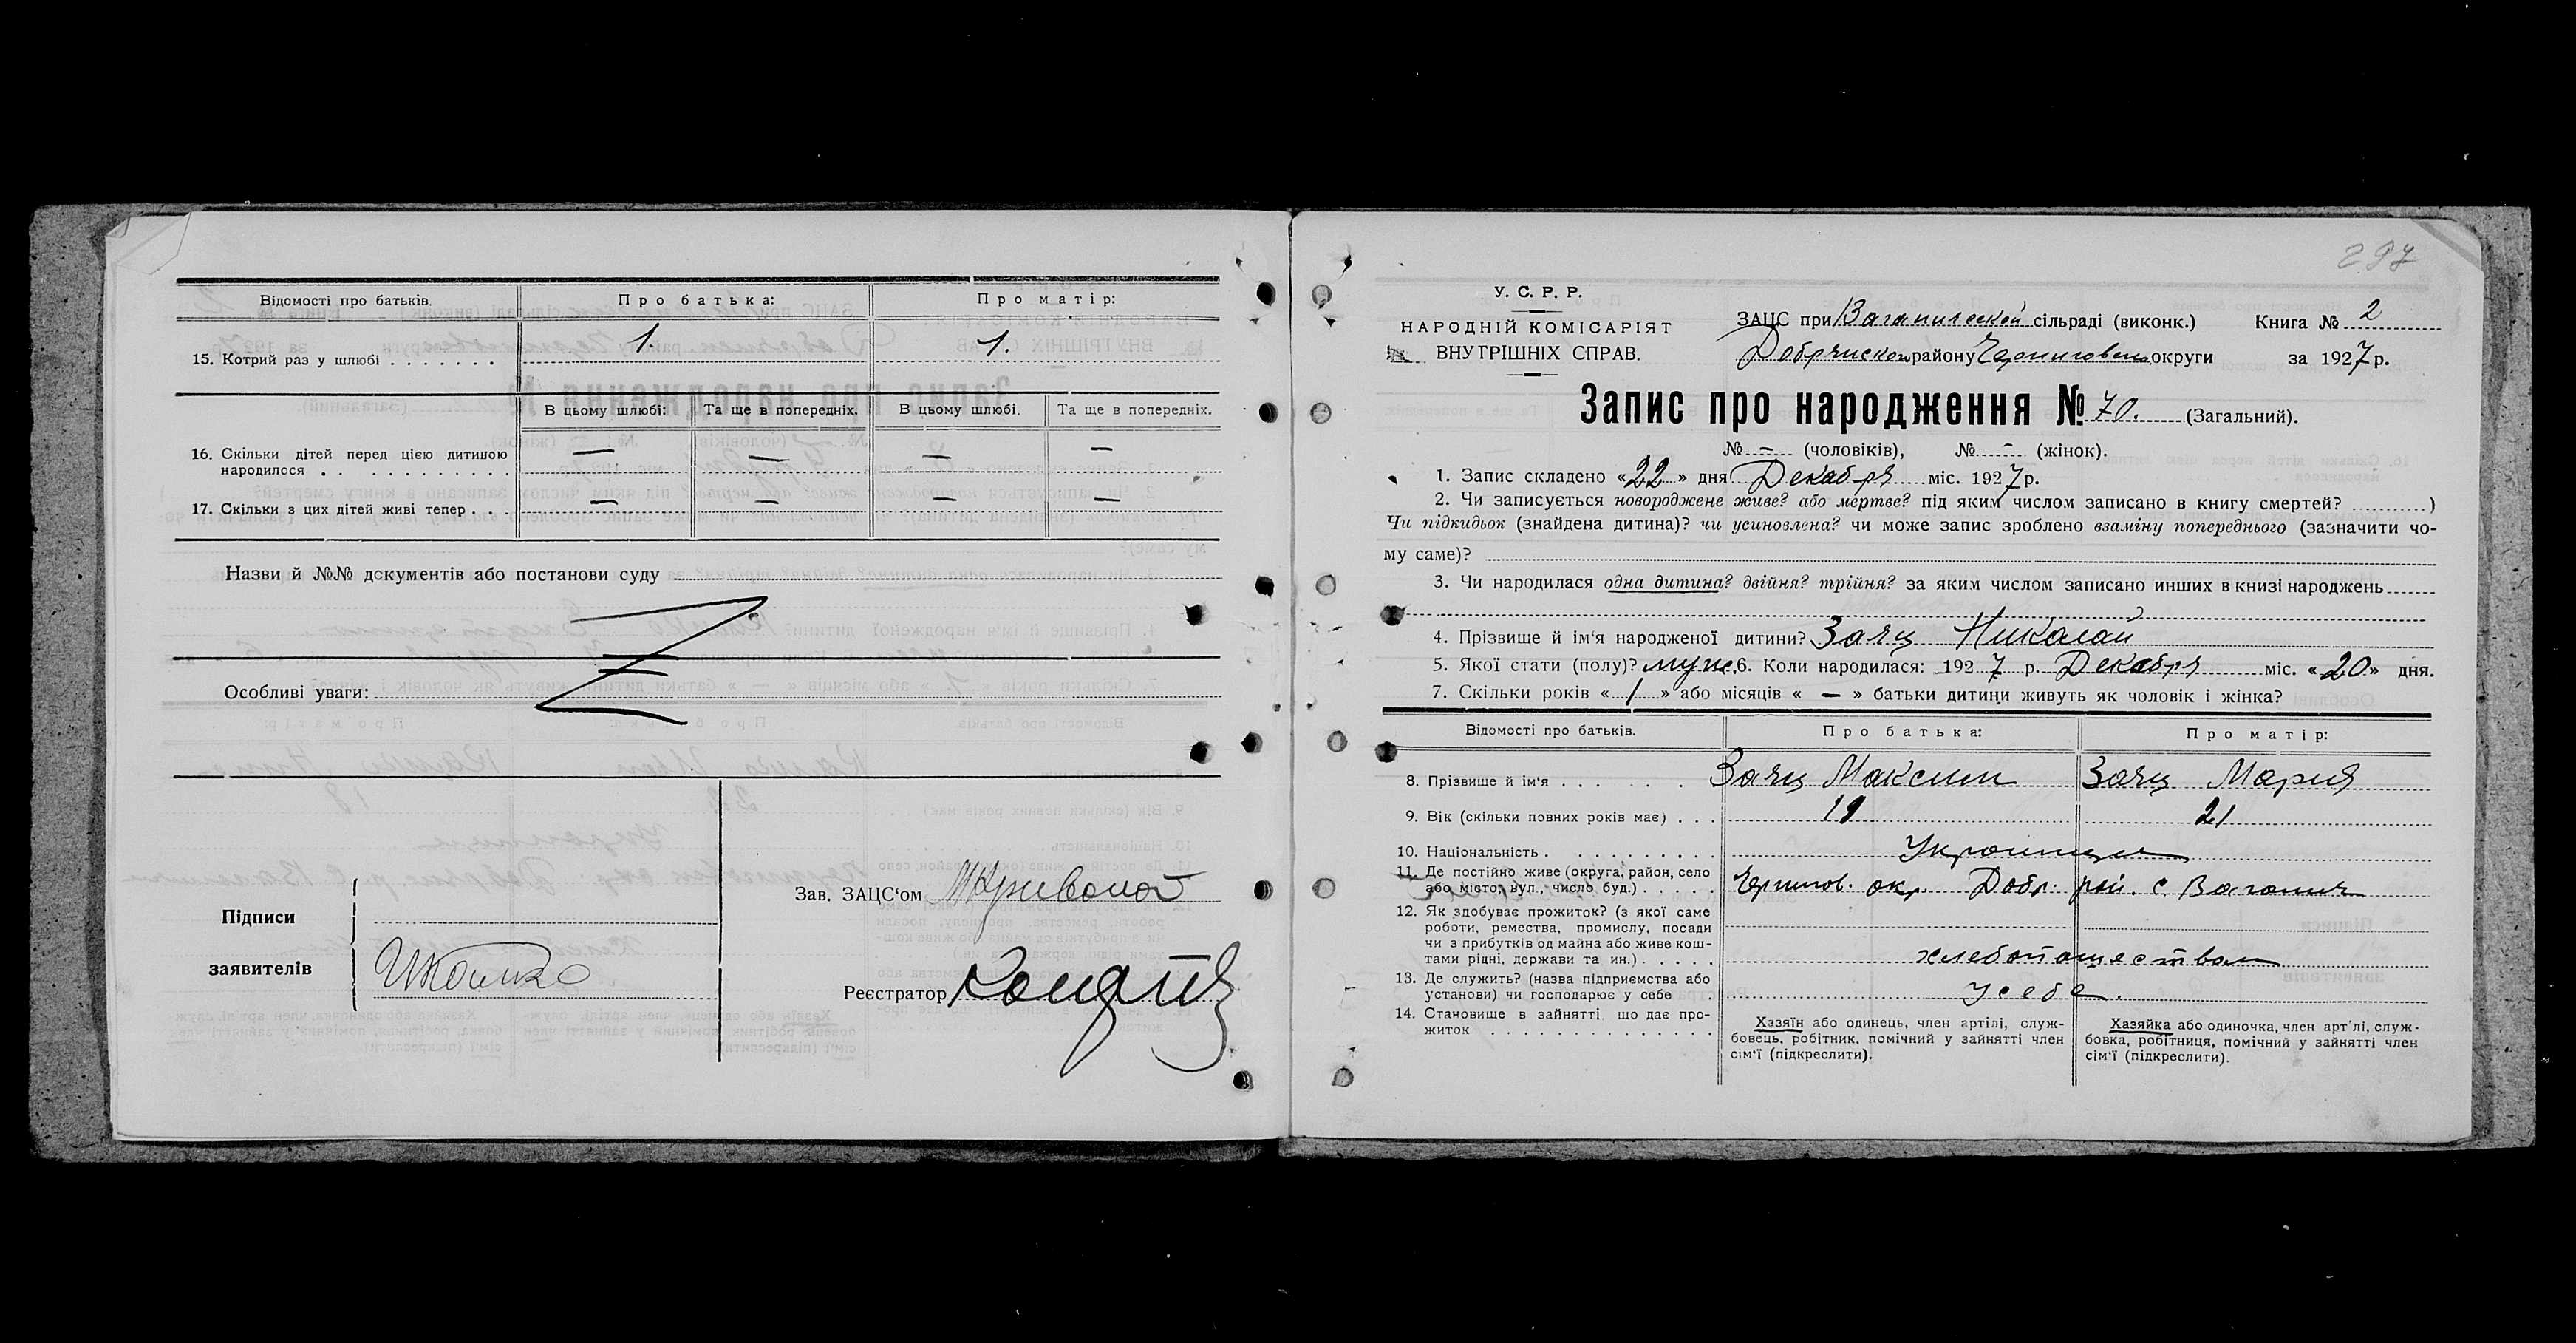 Відомості про батьків. Про батька: Про матір:
15. Котрий раз у шлюбі . . . . . . . 1. 1.
В цьому шлюбі: Та ще в попередніх. В цьому шлюбі. Та ще в попередніх.
16. Скільки дітей перед цією дитиною
народилося . . . . . . . . . . . — — — —
17. Скільки з цих дітей живі тепер . . . — — — —
Назви й №№ документів або постанови суду
Особливі уваги:
Підписи
заявителів
Зав. ЗАЦС'ом
Реєстратор
297
У. С. Р. Р.
НАРОДНІЙ КОМІСАРІЯТ
ВНУТРІШНІХ СПРАВ.
ЗАЦС при Ваганичской сільраді (виконк.) Книга № 2
Добрянском району Черниговской округи за 1927 р.
Запис про народження № 70. (Загальний).
№ — (чоловіків), № — (жінок).
1. Запис складено «22» дня Декабря міс. 1927 р.
2. Чи записується новороджене живе? або мертве? під яким числом записано в книгу смертей? ............)
Чи підкидьок (знайдена дитина)? чи усиновлена? чи може запис зроблено взаміну попереднього (зазначити чо-
му саме)?
3. Чи народилася одна дитина? двійня? трійня? за яким числом записано инших в книзі народжень
4. Прізвище й ім'я народженої дитини? Заяц Николай
5. Якої стати (полу)? муж. 6. Коли народилася: 1927 р. Декабря міс. «20» дня.
7. Скільки років «1» або місяців « — » батьки дитини живуть як чоловік і жінка?
Відомості про батьків. Про батька: Про матір:
8. Прізвище й ім'я . . . . . . Заяц Максим Заяц Мария
9. Вік (скільки повних років має) . . . 19 21
10. Національність . . . . . . . . . . Украинцы
11. Де постійно живе (округа, район, село
або місто, вул., число буд.) . . . . . Чернигов. окр. Добр. рай. с. Ваганичи
12. Як здобуває прожиток? (з якої саме
роботи, ремества, промислу, посади
чи з прибутків од майна або живе кош-
тами рідні, держави та ин.) . . . . . хлебопашеством
13. Де служить? (назва підприємства або
установи) чи господарює у себе у себе.
14. Становище в зайнятті, що дає про-
житок . . . . . . . . . . . . . .
Хазяїн або одинець, член артілі, служ-
бовець, робітник, помічний у зайнятті член
сім'ї (підкреслити).
Хазяйка або одиночка, член арт'лі, служ-
бовка, робітниця, помічний у зайнятті член
сім'ї (підкреслити).